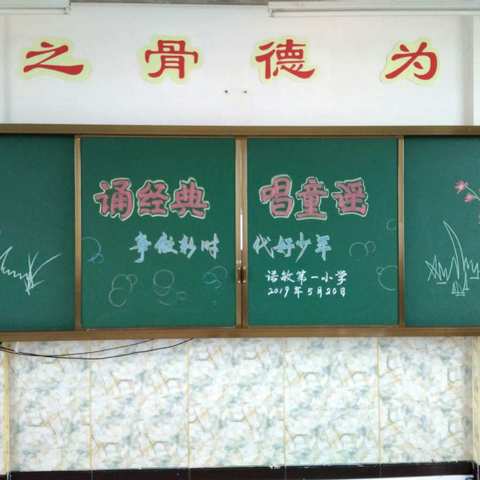 之骨德为
诵经典 唱童谣
争做新时代好少年
牧第一小学
2019年5月20日